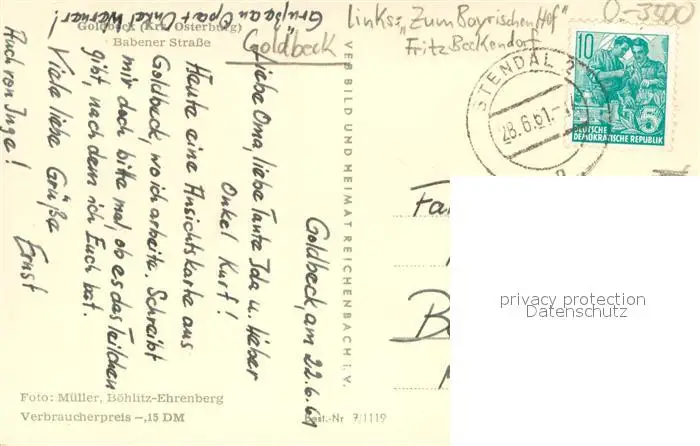 Grüße an Opa + Onkel Werner!
Goldbeck (Krs. Osterburg)
Babener Straße
Goldbeck
links: "Zum Bayrischen Hof"
Fritz Beckendorf
O-3500
STENDAL 2
28.6.61.-
10
5
DEUTSCHE
DEMOKRATISCHE REPUBLIK
Goldbeck, am 22.6.61
Liebe Oma, liebe Tante Ida u. lieber
Onkel Kurt!
Heute eine Ansichtskarte aus
Goldbeck, wo ich arbeite. Schreibt
mir doch bitte mal, ob es das Teilchen
gibt, nach dem ich Euch bat.
Viele liebe Grüße
Ernst
Auch von Inge!
VEB BILD UND HEIMAT REICHENBACH I. V.
Foto: Müller, Böhlitz-Ehrenberg
Verbraucherpreis –,15 DM
Best.-Nr 7/1119
Fa
B
privacy protection
Datenschutz